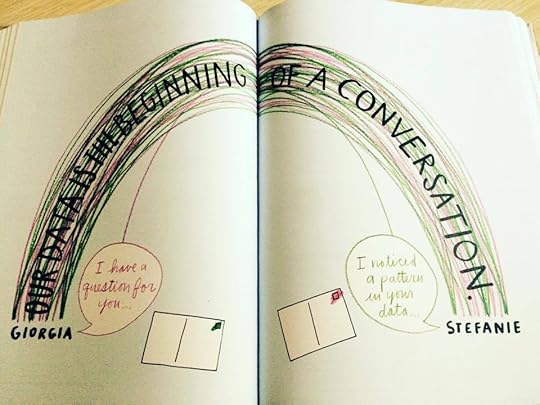 OUR DATA IS THE BEGINNING OF A CONVERSATION.
I have a
question for
you...
I noticed
a pattern
in your
data...
GIORGIA
STEFANIE